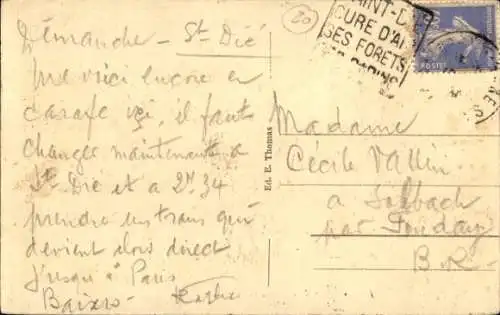 Dimanche - St Dié
Me voici encore en
carafe ici, il faut
changer maintenant à
St Dié et a 2h.34
prendre un train qui
devient alors direct
jusqu'à Paris
20
SAINT-D
CURE D'AI
SES FORETS
POSTES
Ed. E. Thomas
Madame
Cécile Vallin
a Solbach
par Fouday
B-R-